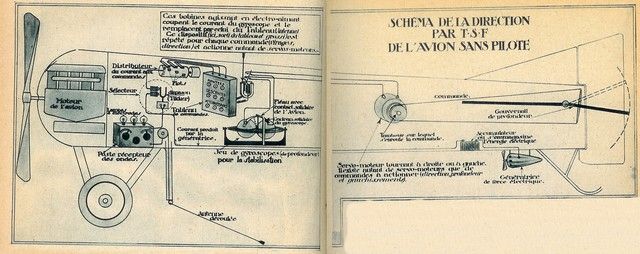 Ces bobines agissant en électro-aimant
coupent le courant du gyroscope et le
remplacent par celui du Tableau
Ce dispositif
répété pour chaque commande
direction) et actionne autant de servo-moteurs...
SCHÉMA DE LA DIRECTION
PAR T·S·F
DE L'AVION SANS PILOTE
Distributeur
du courant aux
commandes
Plots
Sélecteur
Moteur
de l'avion
Tableau de
commande
Courant produit
par la
génératrice.
Poste récepteur
des ondes.
Jeu de gyroscopes (de profondeur)
pour la stabilisation
Antenne
déroulée
commande
Gouvernail
de profondeur
Tambour sur lequel
s'enroule la commande
Accumulateur
où s'emmagasine
l'énergie électrique
Servo-moteur tournant à droite ou à gauche.
Il existe autant de servo-moteurs que de
commandes à actionner (direction, profondeur
et gauchissement)
Génératrice
de force électrique.